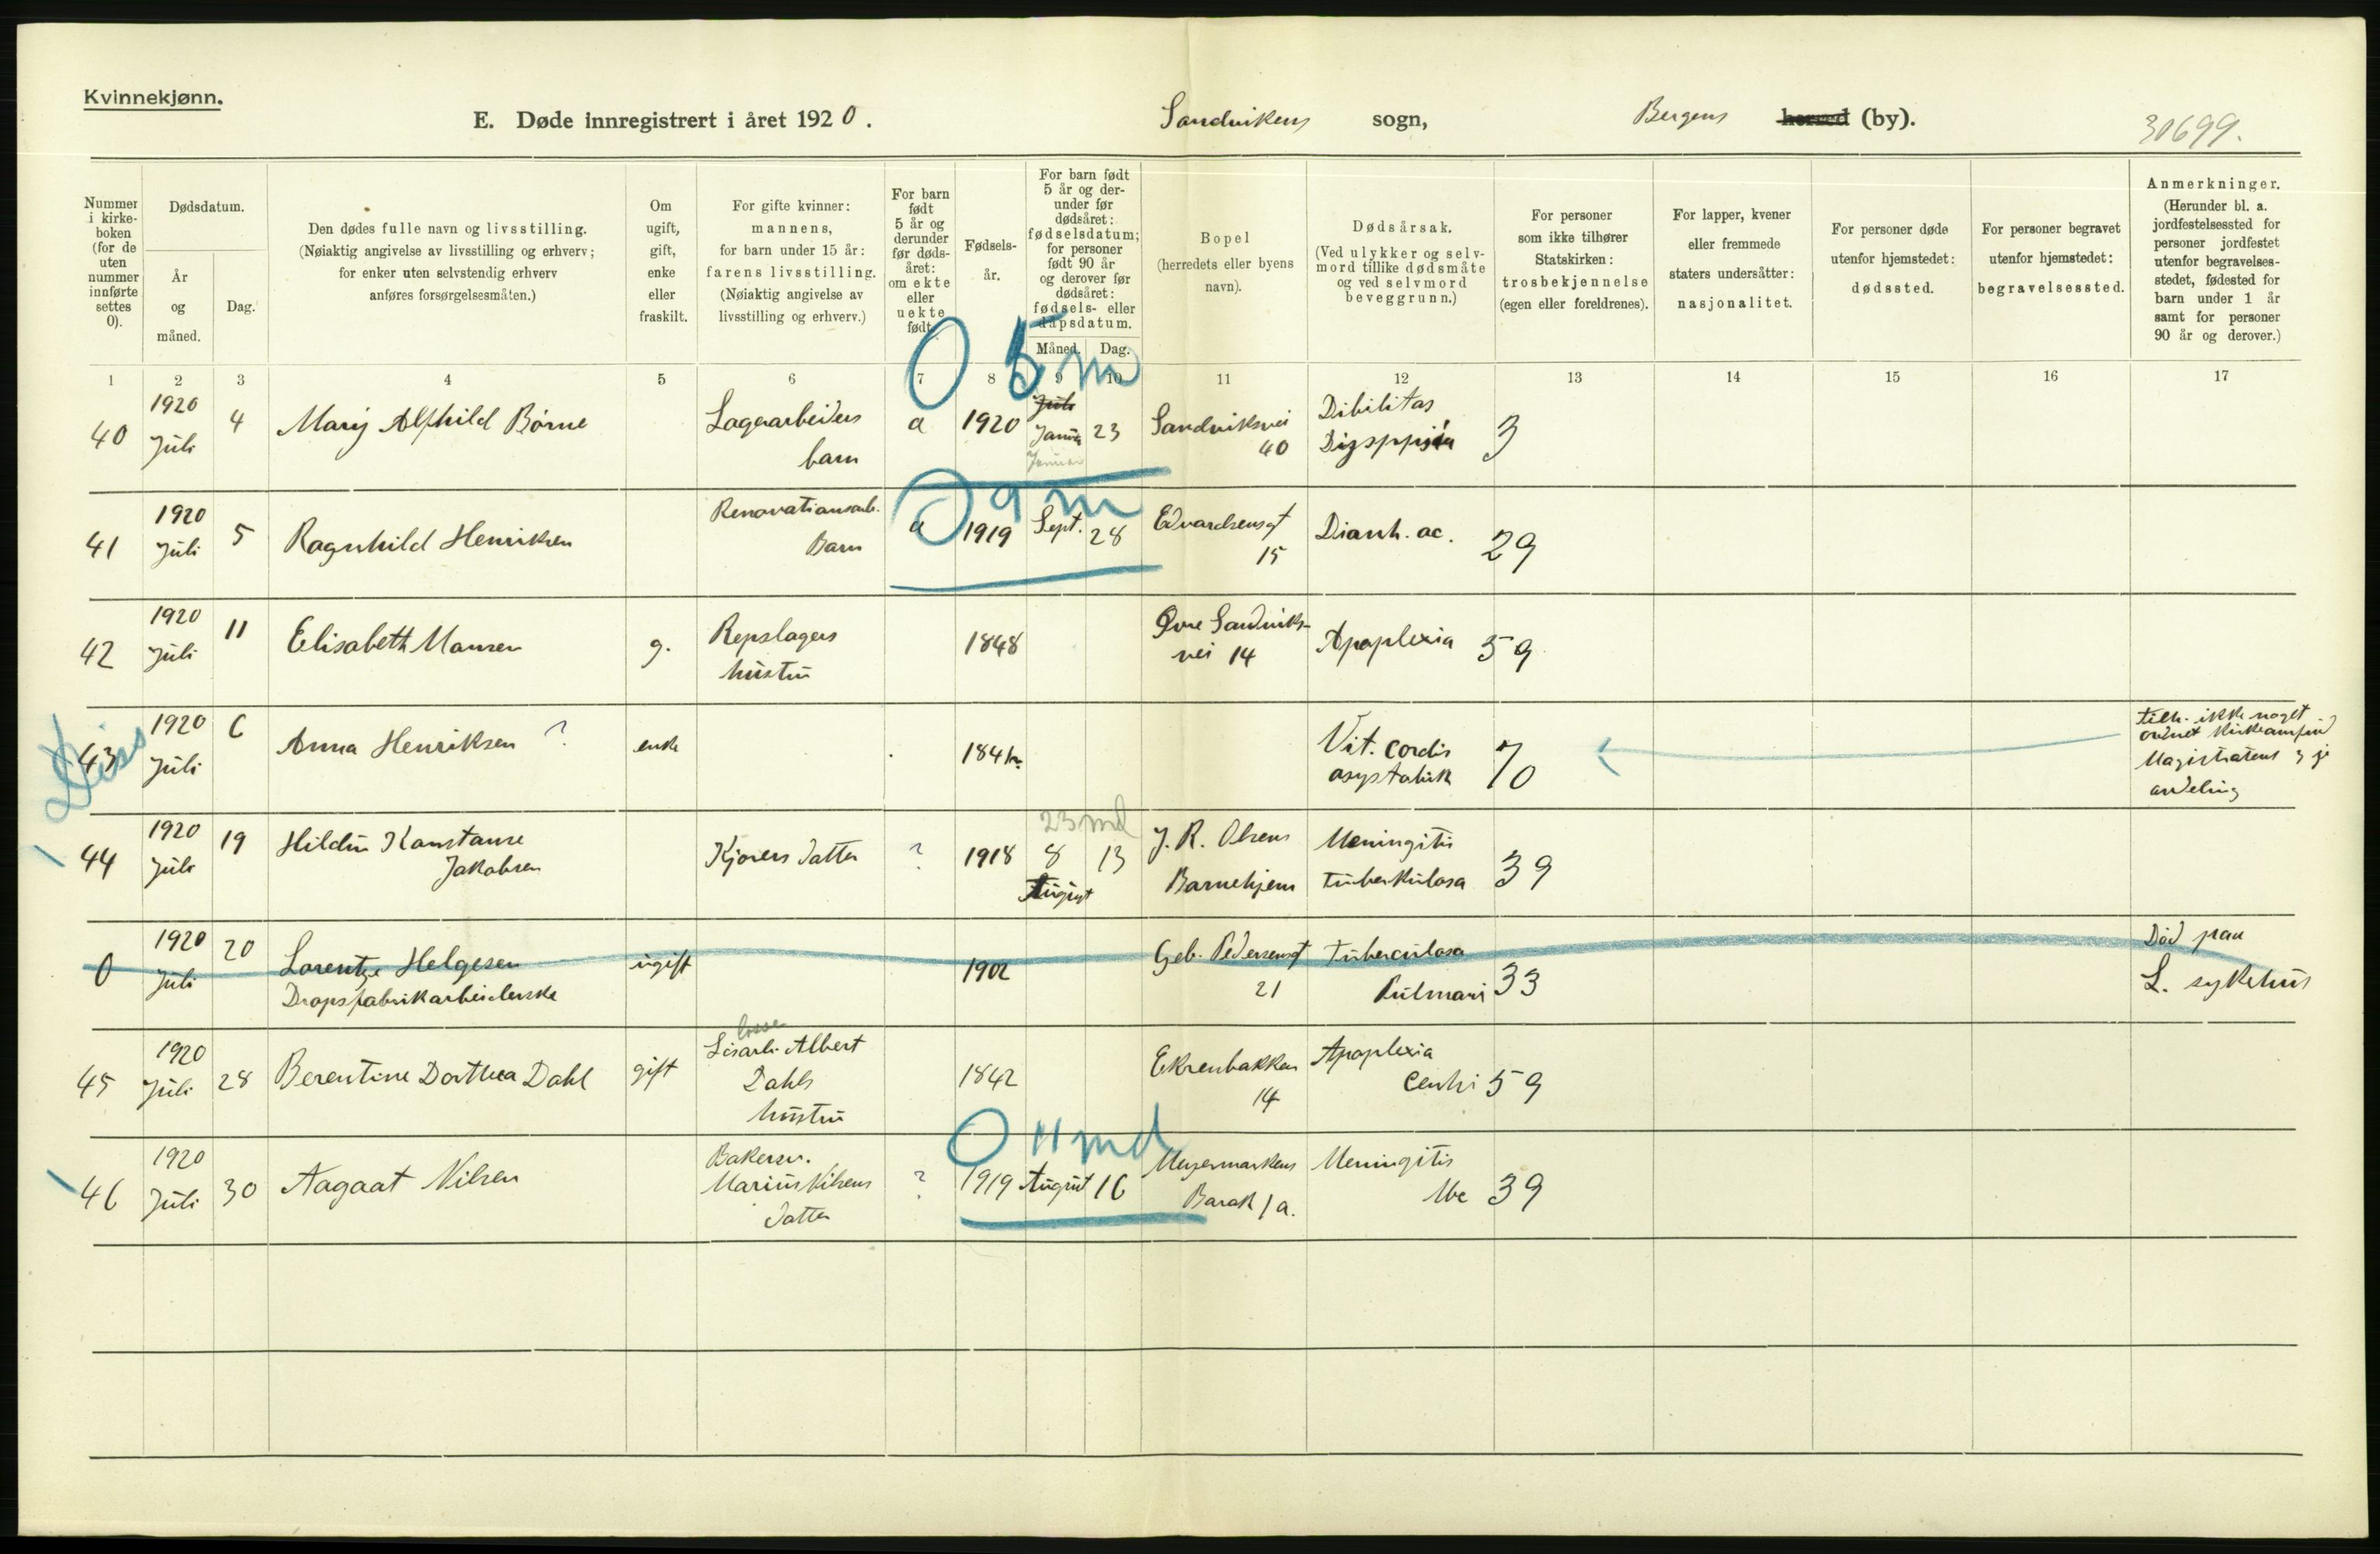 Kvinnekjønn.
E. Døde innregistrert i året 1920.
Sandvikens sogn,
Bergens herred (by).
30699.
Nummer i kirke-boken (for de uten nummer innførte settes 0).
Dødsdatum.
År og måned.
Dag.
Den dødes fulle navn og livsstilling.
(Nøiaktig angivelse av livsstilling og erhverv;
for enker uten selvstendig erhverv
anføres forsørgelsesmåten.)
Om ugift, gift, enke eller fraskilt.
For gifte kvinner:
mannens,
for barn under 15 år:
farens livsstilling.
(Nøiaktig angivelse av
livsstilling og erhverv.)
For barn født 5 år og derunder før døds-året: om ekte eller uekte født.
Fødsels-år.
For barn født 5 år og der-under før dødsåret: fødselsdatum; for personer født 90 år og derover før dødsåret: fødsels- eller dåpsdatum.
Måned. Dag.
Bopel
(herredets eller byens
navn).
Dødsårsak.
(Ved ulykker og selv-
mord tillike dødsmåte
og ved selvmord
beveggrunn.)
For personer
som ikke tilhører
Statskirken:
trosbekjennelse
(egen eller foreldrenes).
For lapper, kvener
eller fremmede
staters undersåtter:
nasjonalitet.
For personer døde
utenfor hjemstedet:
dødssted.
For personer begravet
utenfor hjemstedet:
begravelsessted.
Anmerkninger.
(Herunder bl. a.
jordfestelsessted for
personer jordfestet
utenfor begravelses-
stedet, fødested for
barn under 1 år
samt for personer
90 år og derover.)
1 2 3 4 5 6 7 8 9 10 11 12 13 14 15 16 17
0 5 m
40 1920 Juli 4 Mary Alfhild Børne Lagerarbeiders barn a 1920 Juli Januar 23 Januar Sandviksvei 40 Dibilitas Digsppsia 3
0 9 m
41 1920 Juli 5 Ragnhild Henriksen Renovationsarb. Barn a 1919 Sept. 28 Edvardsensgt 15 Diarrh. ac. 29
42 1920 Juli 11 Elisabeth Hansen g. Repslagers hustru 1848 Øvre Sandviks-vei 14 Apoplexia 59
Diss
43 1920 Juli 6 Anna Henriksen ? enke 184 Vit. cordis asystolisk 70 tilh. ikke noget ordnet Magistratens avdeling
23 md
44 1920 Juli 19 Hildur Konstanse Jakobsen Kjørers datter ? 1918 8 13 August J. R. Olsens Barnehjem Meningitis tuberkulosa 39
0 1920 Juli 20 Lorentze Helgesen Dropsfabrikarbeiderske ugift 1902 Geb. Pedersensgt 21 Tuberculosa Pulmari 33 Død paa L. sykehus
45 1920 Juli 28 Berentine Dorthea Dahl gift losse Albert Dahls hustru 1842 Ekrenbakken 14 Apoplexia 59
0 11 md
46 1920 Juli 30 Aagaat Nilsen Bakersv. Marius Nilsens datter ? 1919 August 16 Meyermarkens Barak 1 a. Meningitis tbc 39